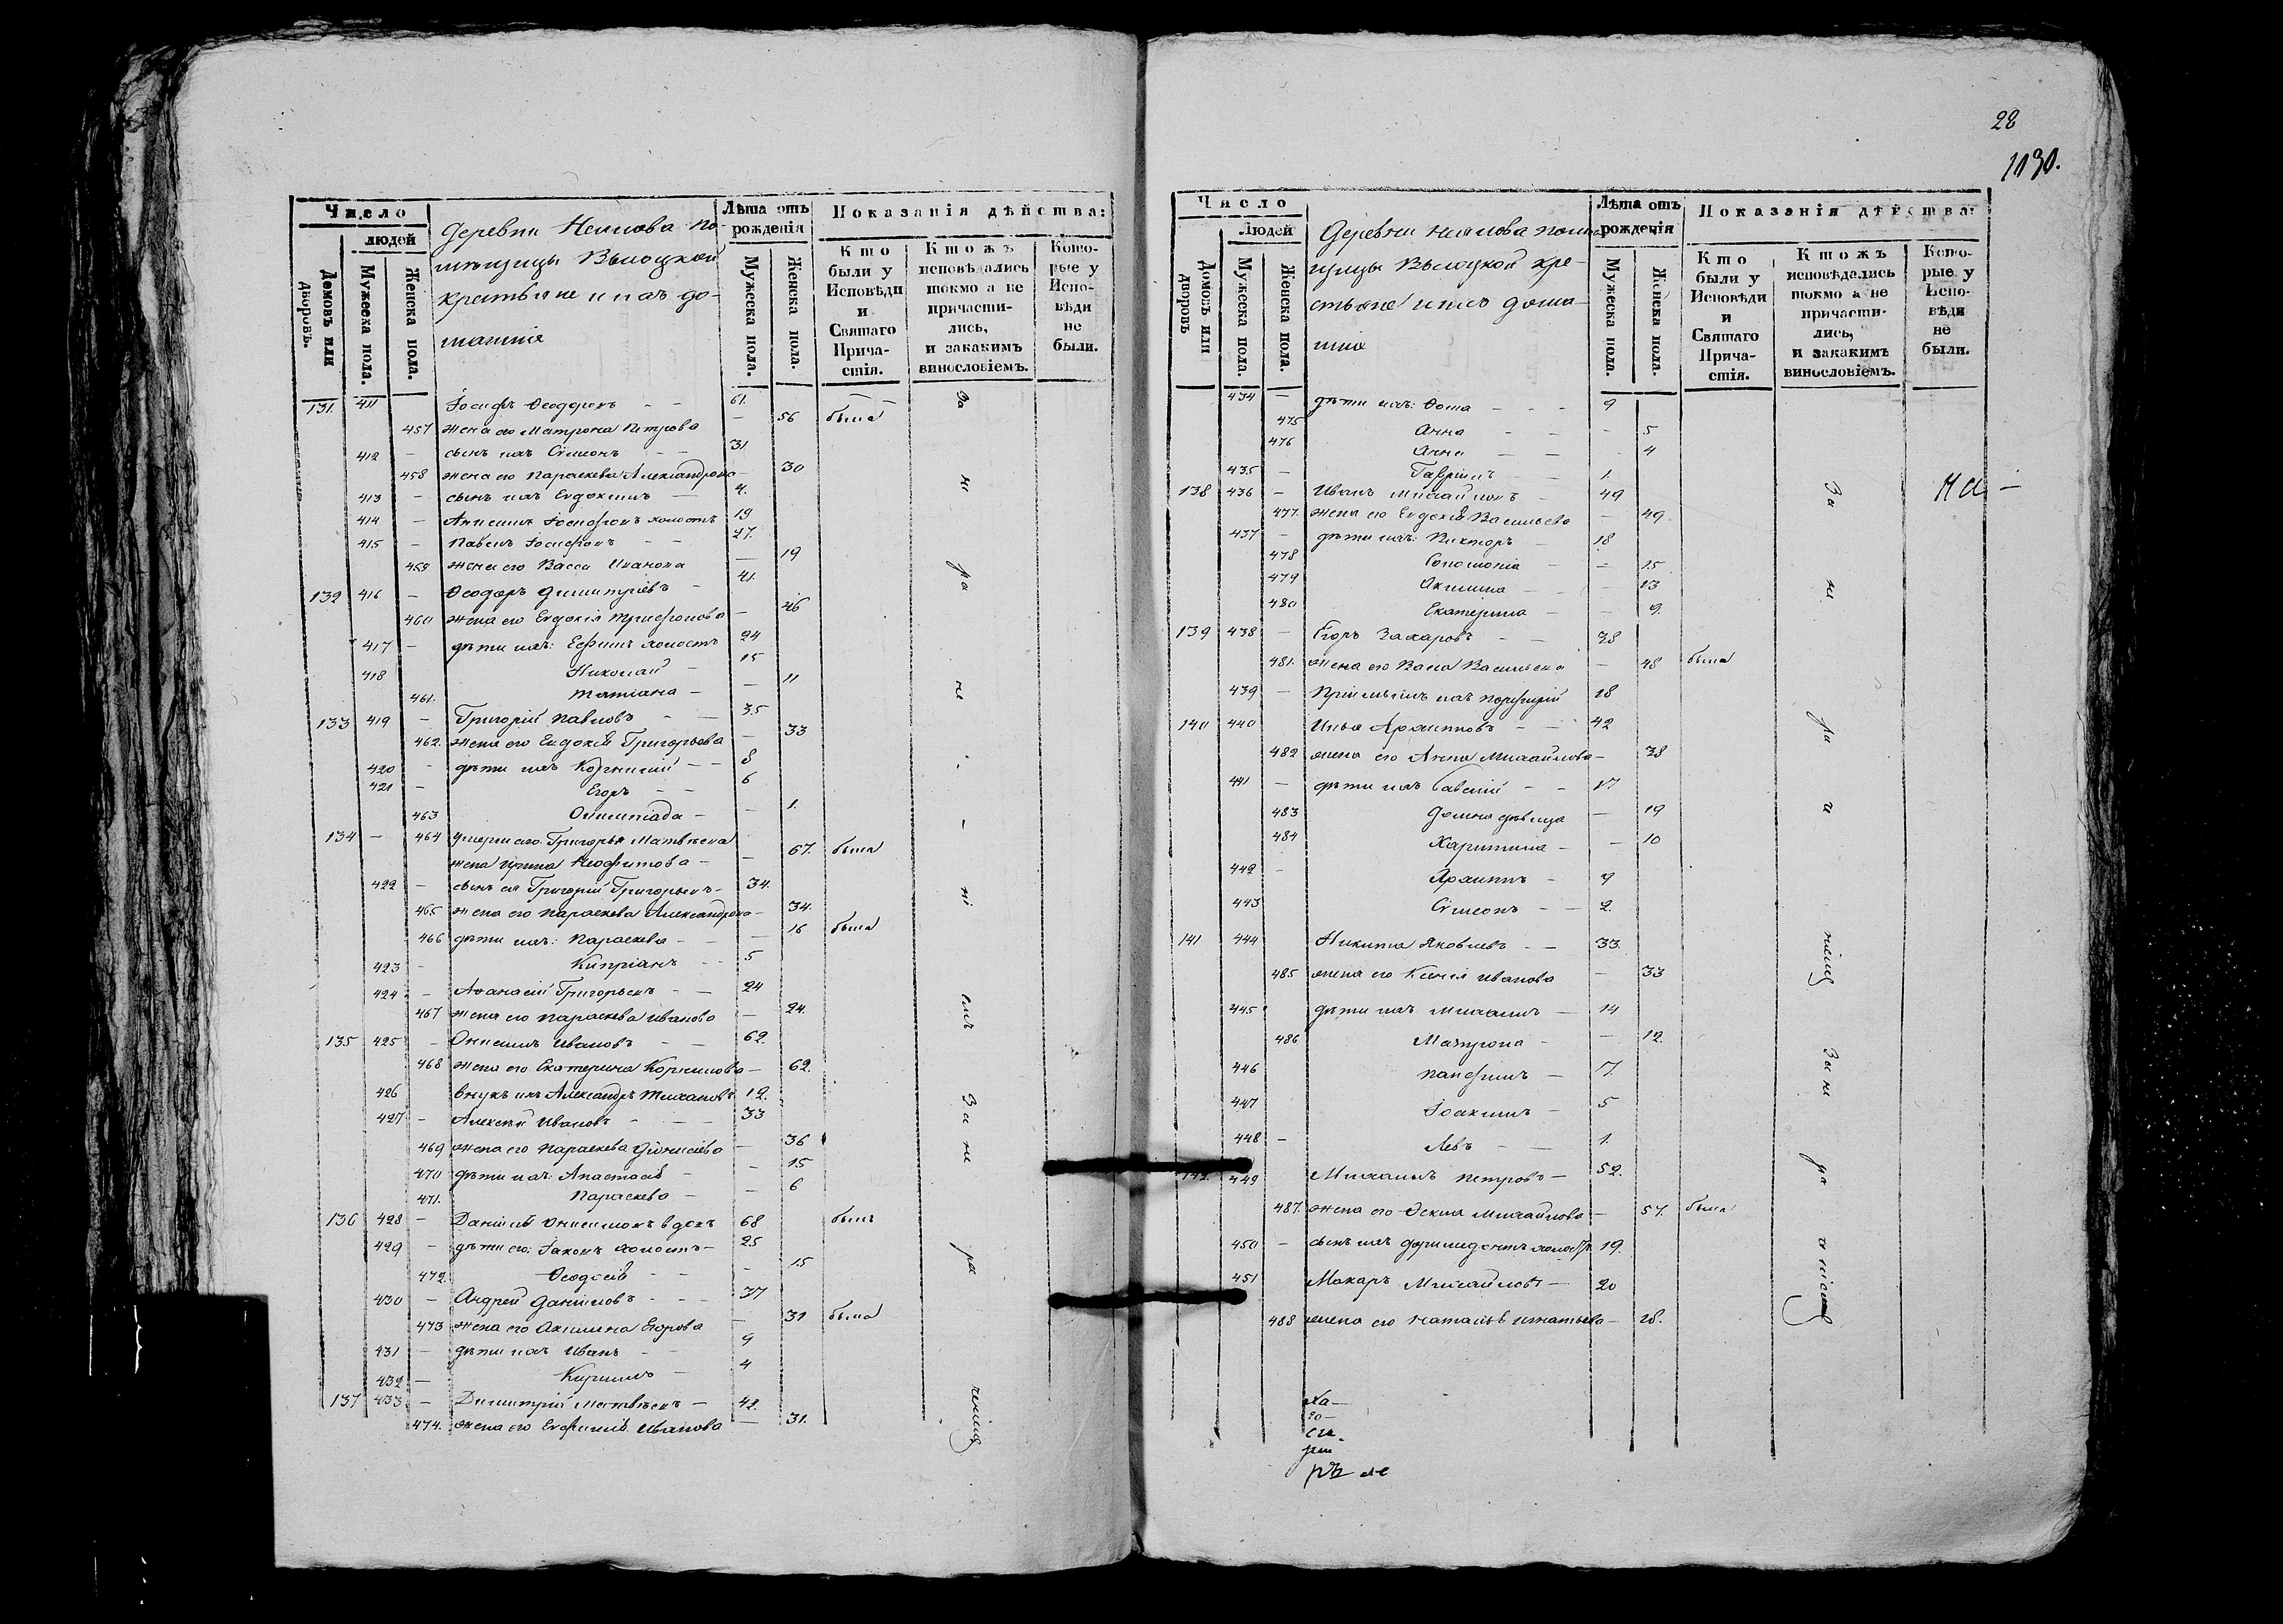 Число
людей
Домовъ или дворовъ.
Мужеска пола.
Женска пола.
Деревни Неилова по-
мѣщицы Высоцкой
крестьяне и ихъ до-
машніе
Лѣта отъ рожденія
Мужеска пола.
Женска пола.
Показанія дѣйства:
Кто были у Исповѣди и Святаго Причастія.
Ктожъ исповѣдались токмо а не причастились, и закакимъ винословіемъ.
Которые у Исповѣди не были.
131. 411 Іосифъ Ѳеодоровъ - - 61. —
457 жена его Матрона Петрова — 56 была
412 — сынъ ихъ Сѵмеонъ - - 31
458 жена его Параскева Александрова — 30
413 — сынъ ихъ Евдокимъ — 4.
414 — Анисимъ Іосифовъ холостъ 19
415 — Павелъ Іосифовъ - - 27.
459 жена его Васса Иванова — 19
132 416 — Ѳеодоръ Димитріевъ - 41.
460 жена его Евдокія Трифонова — 46
417 — дѣти ихъ: Ефимъ холостъ 24
418 Николай — 15
461. Татіана — — 11
133 419 — Григорій Павловъ - — 35
462. жена его Евдокія Григорьева — 33
420 - дѣти ихъ Корнилій — - 8
421 — Егоръ - - 6
463 Олимпіада — — 1.
134 — 464 умершаго Григорья Матвѣева
жена Ирина Неофитова — — 67. была
422 — сынъ ея Григорій Григорьевъ - 34.
465 жена его Параскева Александрова — 34.
466 дѣти ихъ: Параскева — — 16 была
423 — Кипріанъ - - 5
424 — Аѳанасій Григорьевъ - — 24
467 жена его Параскева Иванова — 24.
135 425 — Онисимъ Ивановъ - — 62.
468 жена его Екатерина Корнилова — 62.
426 внукъ ихъ Александръ 12.
427 — Алексѣй Ивановъ - - — 33
469 жена его Параскева Діонисіева — 36
470 дѣти ихъ: Анастасія - — 15
471. Параскева — — 6
136 428 — Даніилъ Онисимовъ вдовъ 68 былъ
429 — дѣти его: Іаковъ холостъ — 25
472. Ѳеодосія - - - 15
430 — Андрей Даніиловъ - - — 37
473 жена его Акилина Егорова — 31 была
431 — дѣти ихъ Иванъ - - 9
432 — Кириллъ — 4
137 433 — Димитрій Матвѣевъ — 42.
474. жена его Евфимія Иванова — 31.
За не ра не
За не ра
28
1130.
Число
Людей
Домовъ или дворовъ
Мужеска пола.
Женска пола.
Деревни Неилова помѣ-
щицы Высоцкой кре-
стьяне и ихъ дома-
шніе
Лѣта отъ рожденія
Мужеска пола.
Женска пола.
Показанія дѣйства:
Кто были у Исповѣди и Святаго Причастія.
Ктожъ исповѣдались токмо а не причастились, и закакимъ винословіемъ.
Которые у Исповѣди не были.
434 — дѣти ихъ: Ѳома — - - 9
475 Анна - — - 5
476 Анна — — - 4
435 — Гавріилъ - 1.
138 436 — Иванъ Михайловъ - 49
477. жена его Евдокія Васильева — 49.
437 — дѣти ихъ: Викторъ — 18
478 Соломонія — - 15
479 Акилина — - — 13
480 Екатерина — — 9.
139 438 — Егоръ Захаровъ - — 38
481. жена его Васса Васильева — 48 была
439 — Пріимышъ ихъ Порфирій 18
140 440 Илья Архиповъ — — 42
482 жена его Анна Михайлова — 38
441 — дѣти ихъ Савелій - - 17
483 Домна дѣвица — 19
484 Харитина — — 10
442 — Архиппъ — 4
443 Сѵмеонъ - — 2.
141 444 Никита Яковлевъ - — 33.
485 жена его Ксенія Иванова — 33
445 дѣти ихъ Михаилъ — 14
486 Матрона - — 12.
446 Панфилъ — 7.
447 Іоакимъ — 5
448 — Левъ - — 1.
142. 449 Михаилъ Петровъ — 52.
487. жена его Ѳекла Михайлова — 57. была
450 — сынъ ихъ холостъ 19.
451 Макаръ Михайловъ — 20
488 жена его Наталія Игнатьева — 28.
За не ра
За не ра